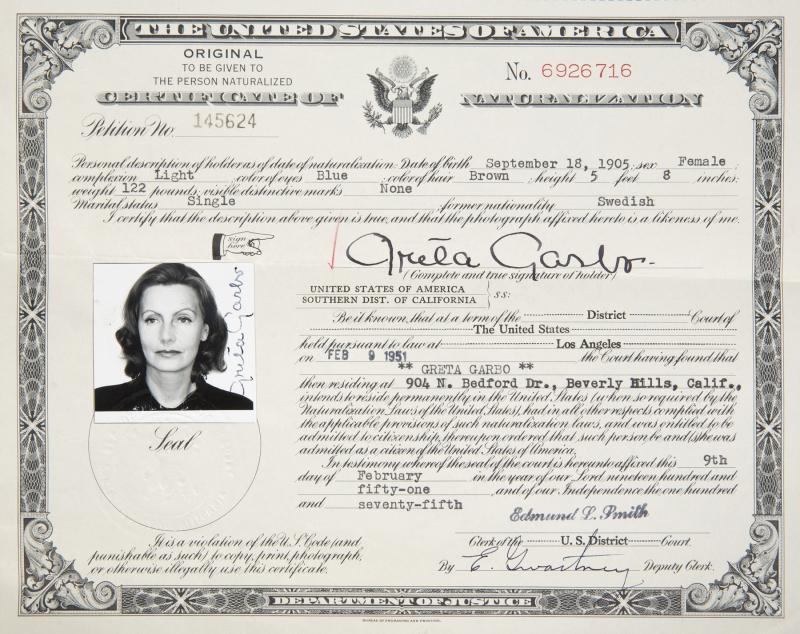 THE UNITED STATES OF AMERICA
ORIGINAL
TO BE GIVEN TO
THE PERSON NATURALIZED
No. 6926716
CERTIFICATE OF NATURALIZATION
Petition No. 145624
Personal description of holder as of date of naturalization: Date of birth September 18, 1905; sex Female;
complexion Light; color of eyes Blue; color of hair Brown; height 5 feet 8 inches;
weight 122 pounds; visible distinctive marks None
Marital status Single; former nationality Swedish
I certify that the description above given is true, and that the photograph affixed hereto is a likeness of me.
sign here
Greta Garbo.
(Complete and true signature of holder)
Greta Garbo
UNITED STATES OF AMERICA
SOUTHERN DIST. OF CALIFORNIA
ss:
Be it known, that at a term of the District Court of
The United States
held pursuant to law at Los Angeles
on FEB 9 1951 the Court having found that
** GRETA GARBO **
then residing at 904 N. Bedford Dr., Beverly Hills, Calif.,
intends to reside permanently in the United States (when so required by the
Naturalization Laws of the United States), had in all other respects complied with
the applicable provisions of such naturalization laws, and was entitled to be
admitted to citizenship, thereupon ordered that such person be and (s)he was
admitted as a citizen of the United States of America.
In testimony whereof the seal of the court is hereunto affixed this 9th
day of February in the year of our Lord nineteen hundred and
fifty-one and of our Independence the one hundred
and seventy-fifth
Seal
Edmund L. Smith
Clerk of the U. S. District Court.
By E. Gwartney Deputy Clerk.
It is a violation of the U.S. Code (and
punishable as such) to copy, print, photograph,
or otherwise illegally use this certificate.
DEPARTMENT OF JUSTICE
BUREAU OF ENGRAVING AND PRINTING